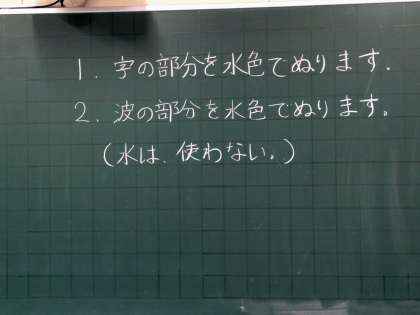 1. 字の部分を水色でぬります.
2. 波の部分を水色でぬります。
(水は、使わない。)